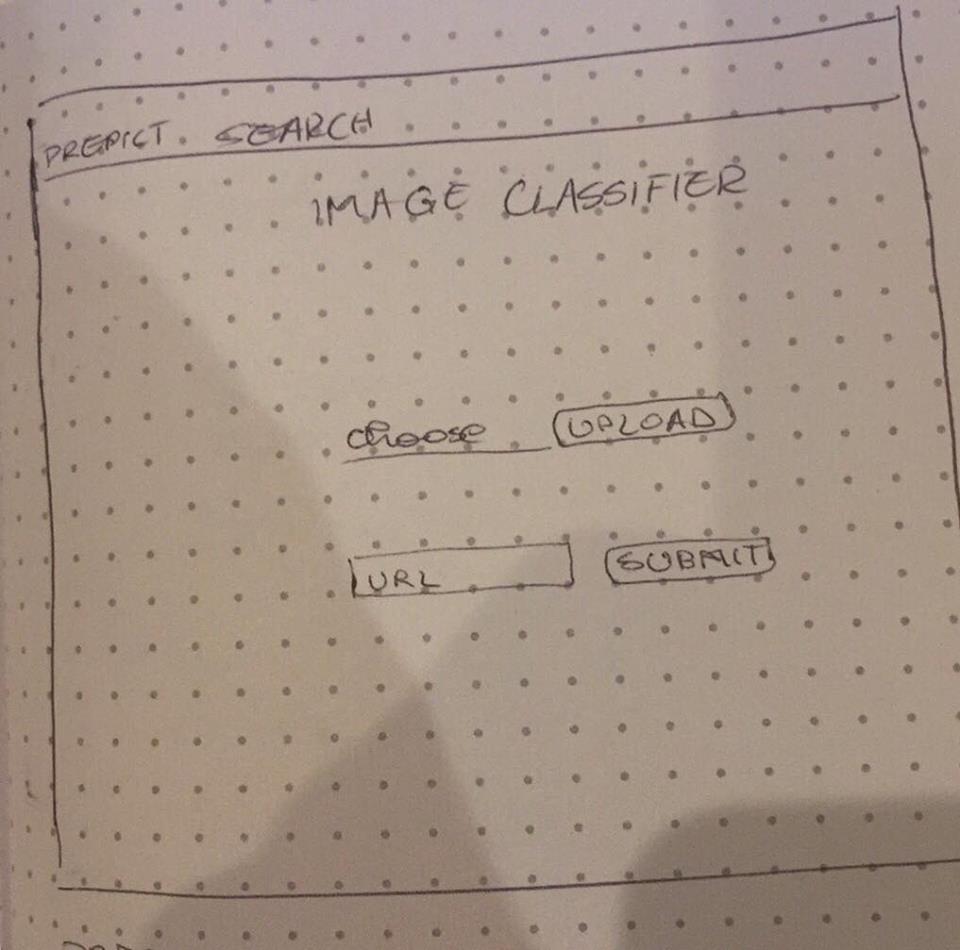 PREDICT SEARCH
IMAGE CLASSIFIER
choose UPLOAD
URL SUBMIT